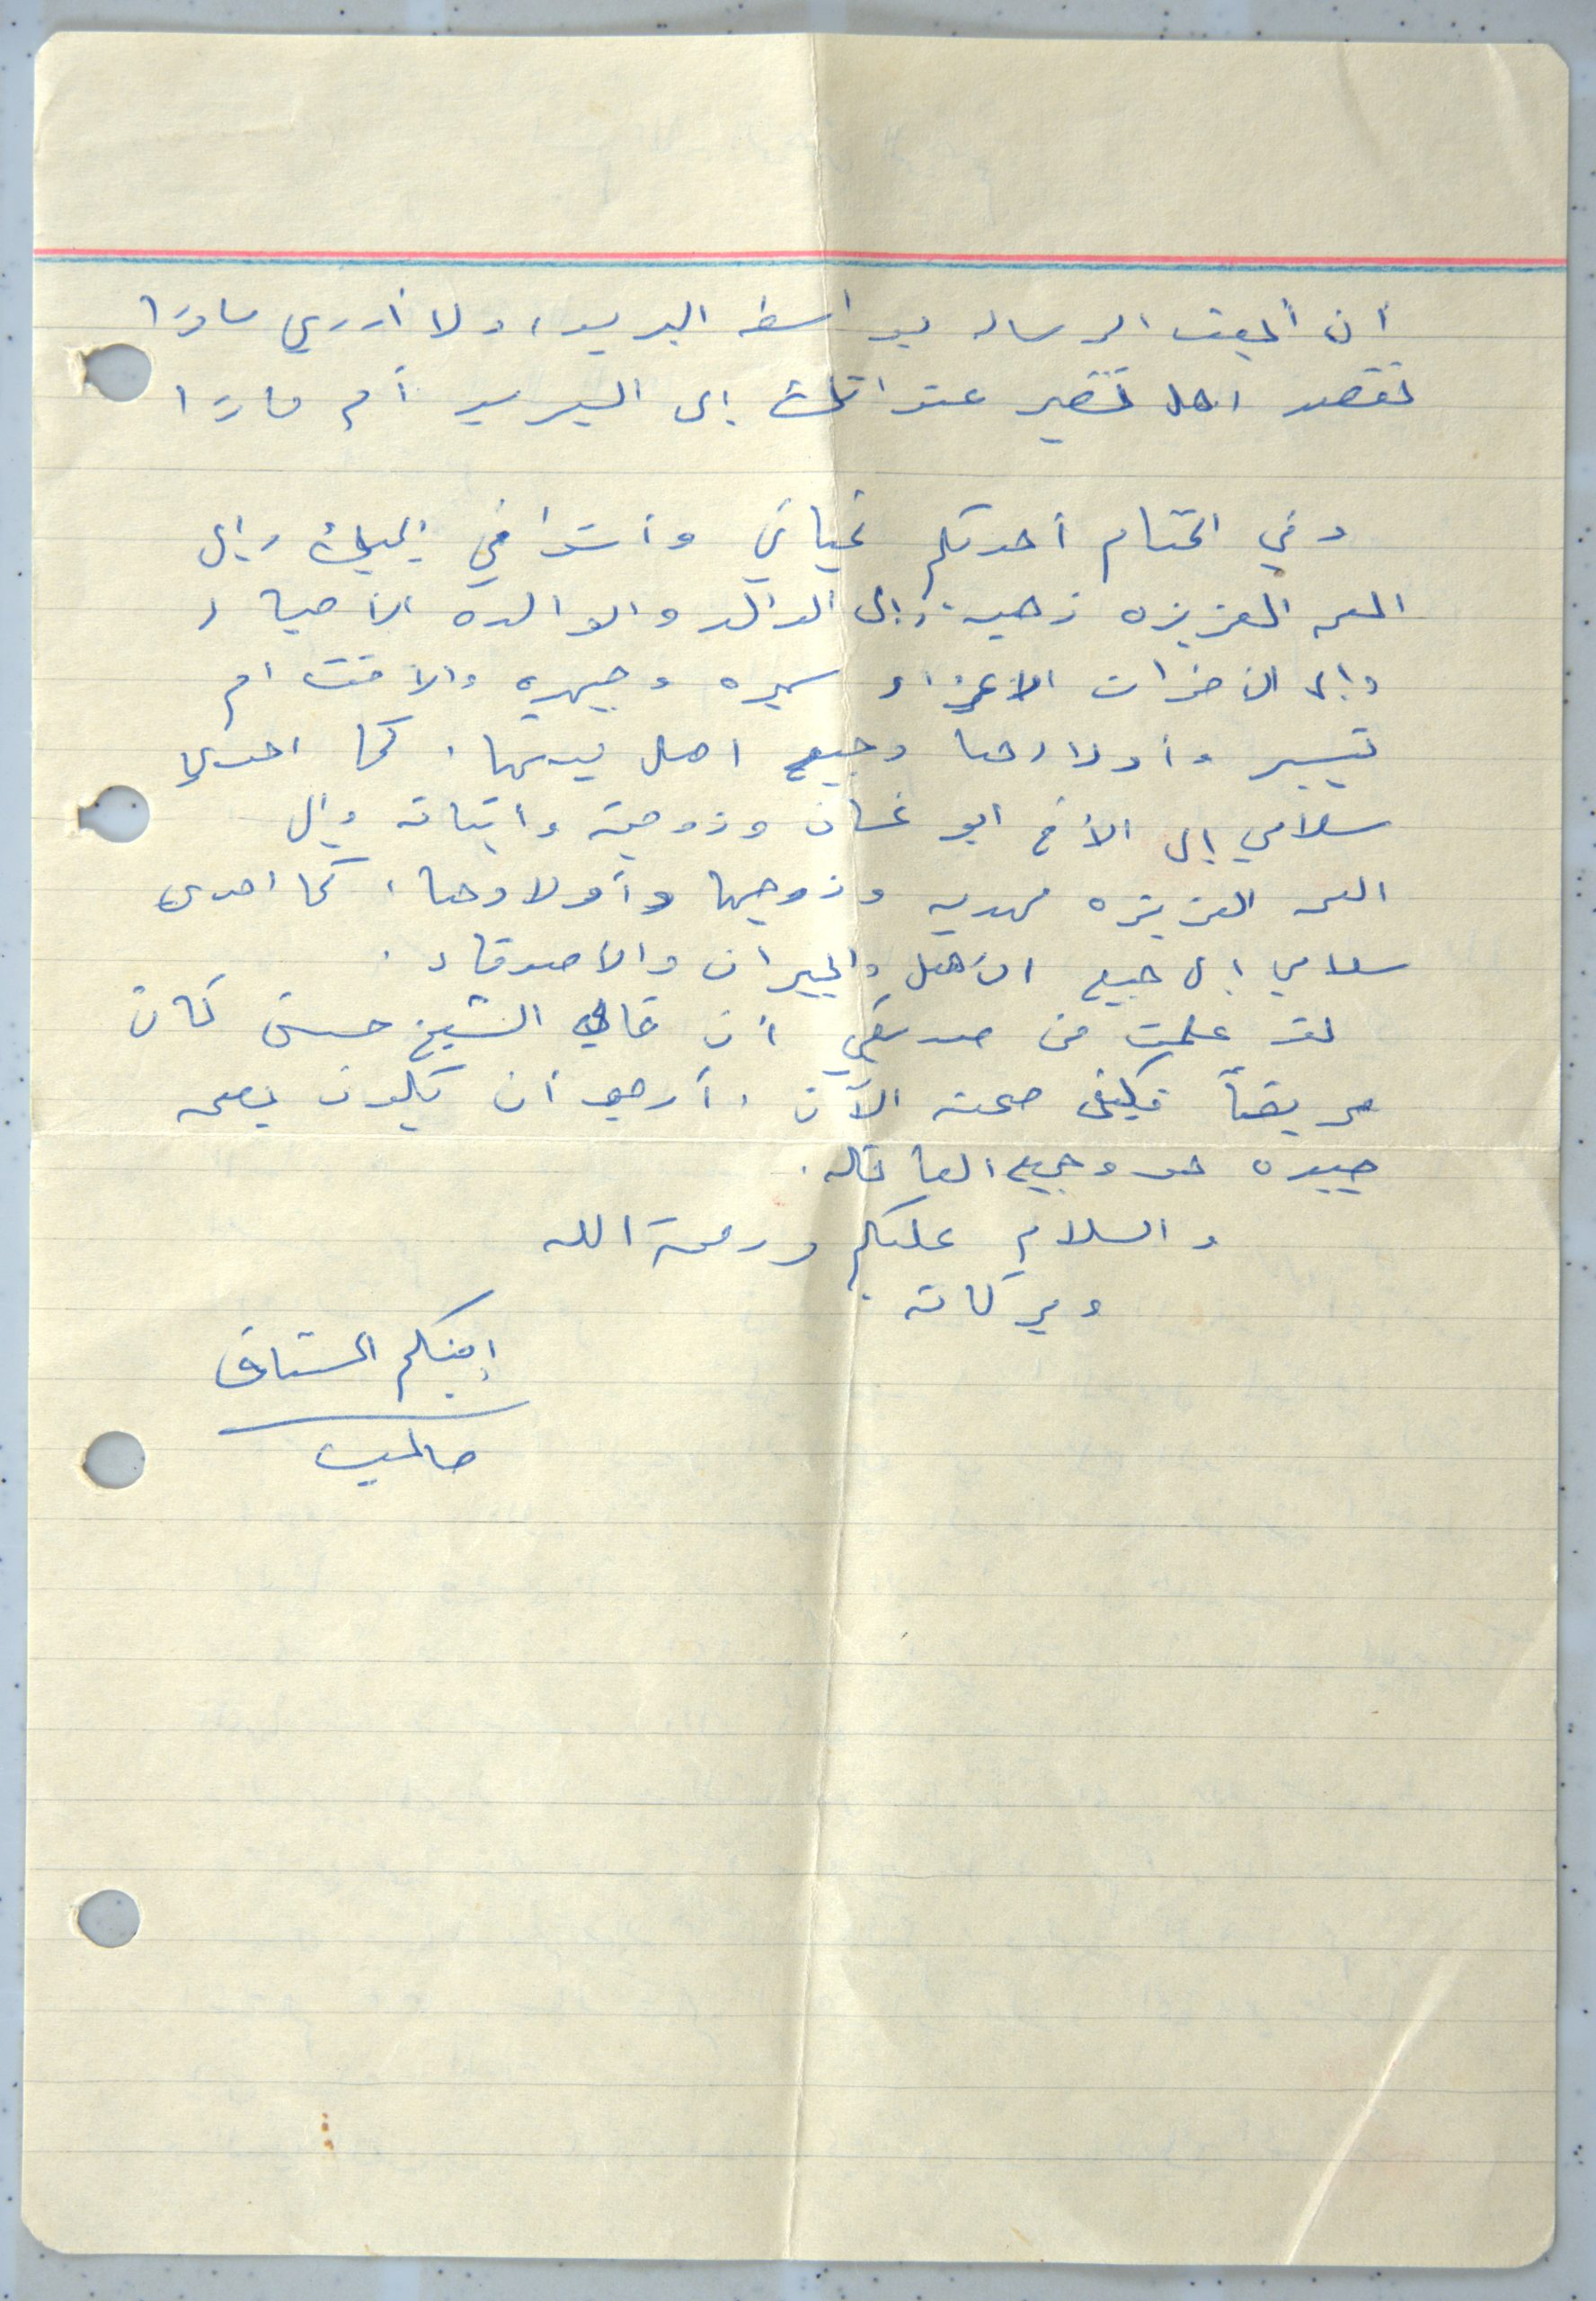 أن أبعث الرسالة بواسطة البريد، ولا أدري ماذا
تقصد اهل تغير عنوانك إلى البريد أم ماذا
وفي الختام أهديكم تحياتي وأشواقي إليك وإلى
العمه العزيزه زهيه وإلى الوالد والوالده الأحباء
وإلى الأخوات الأعزاء سميره وجيهه والأخت ام
تيسير وأولادها وجميع اهل بيتها، كما اهدي
سلامي إلى الأخ ابو غسان وزوجته وابنائه وإلى
العمه العزيزه مهديه وزوجها وأولادها، كما اهدي
سلامي إلى جميع الأهل والجيران والاصدقاء.
لقد علمت من صديقي أن خالي الشيخ حسن كان
مريضاً فكيف صحته الآن، أرجو أن يكون بصحه
جيده هو وجميع العائله.
والسلام عليكم ورحمة الله
وبركاته
إبنكم المشتاق